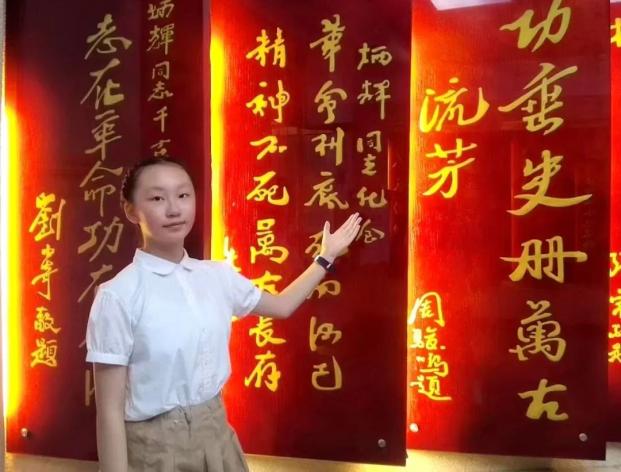 功垂史册萬古
流芳
周駿鳴題
炳輝同志紀念
革命到底死而后已
精神不死萬古長存
炳輝同志千古
志在革命功在
敬題